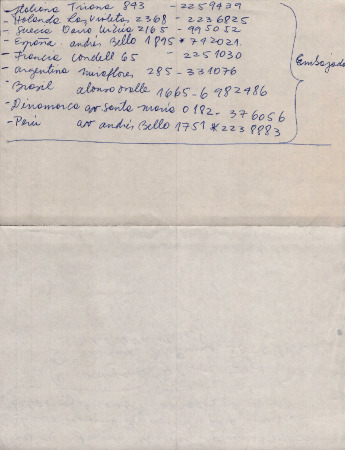 - Italiana Triana 843 - 2259439
- Holanda Las Violetas 2368 - 2236825
- Suecia Dario Urzúa 2165 - 495052
- España. andrés Bello 1895 * 742021.
- Francia Condell 65 - 2251030
- Argentina miraflores 285 - 331076
- Brasil alonso ovalle 1665 - 6 982486
- Dinamarca av Santa maria 0182 - 376056
- Perú av andrés Bello 1751 * 2238883
Embajada